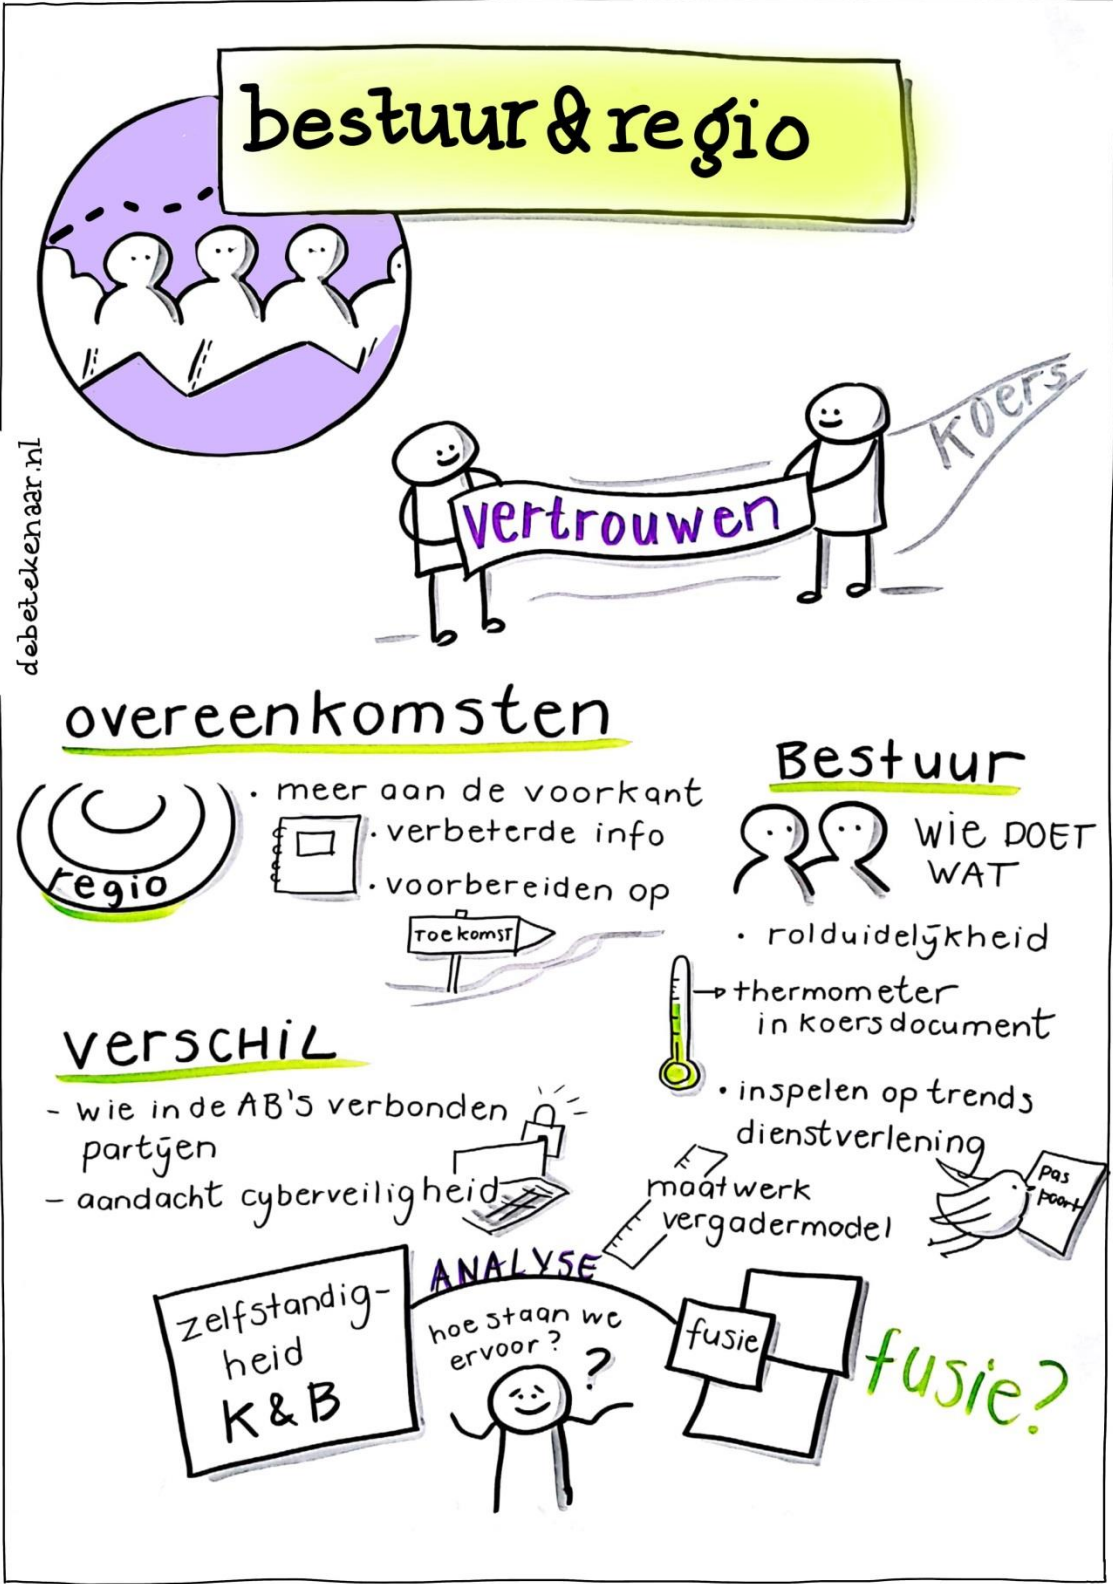 bestuur & regio
koers
vertrouwen
debetekenaar.nl
overeenkomsten
regio
• meer aan de voorkant
• verbeterde info
• voorbereiden op
Toekomst
Bestuur
wie DOET
WAT
• rolduidelijkheid
thermometer
in koersdocument
• inspelen op trends
dienstverlening
pas
poort
maatwerk
vergadermodel
verschil
- wie in de AB's verbonden
partijen
- aandacht cyberveiligheid
zelfstandig-
heid
K & B
ANALYSE
hoe staan we
ervoor?
?
fusie
fusie?